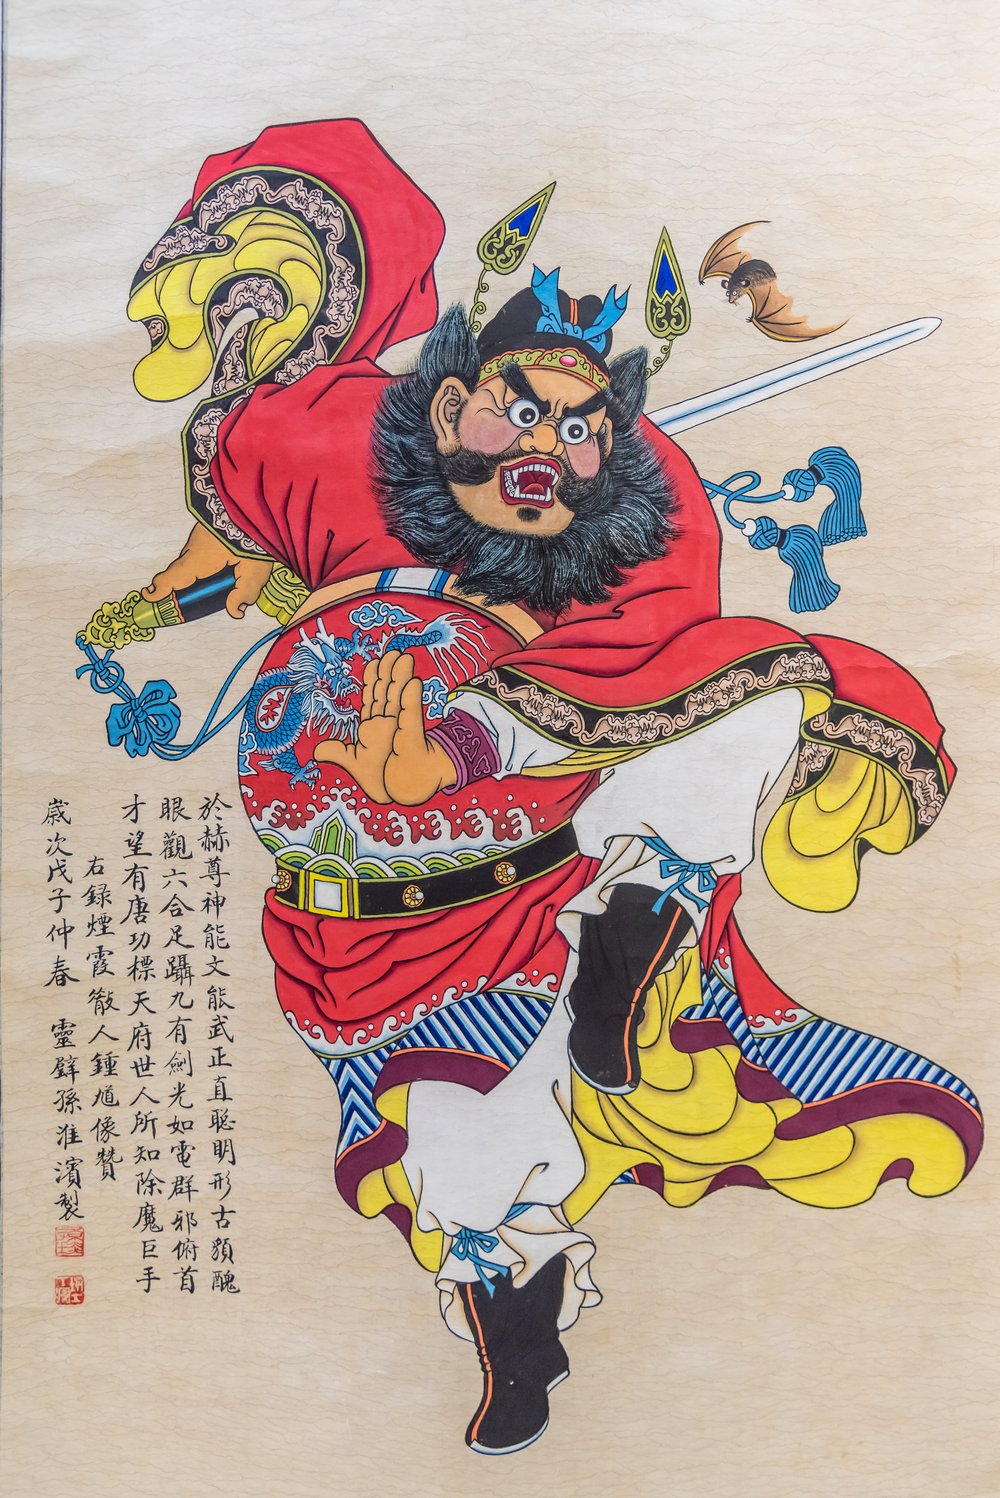 於赫尊神能文能武正直聪明形古類醜
眼觀六合足躡九有劍光如電群邪俯首
才望有唐功標天府世人所知除魔巨手
右録煙霞散人鍾馗像贊
歲次戊子仲春 靈璧孫淮濱製